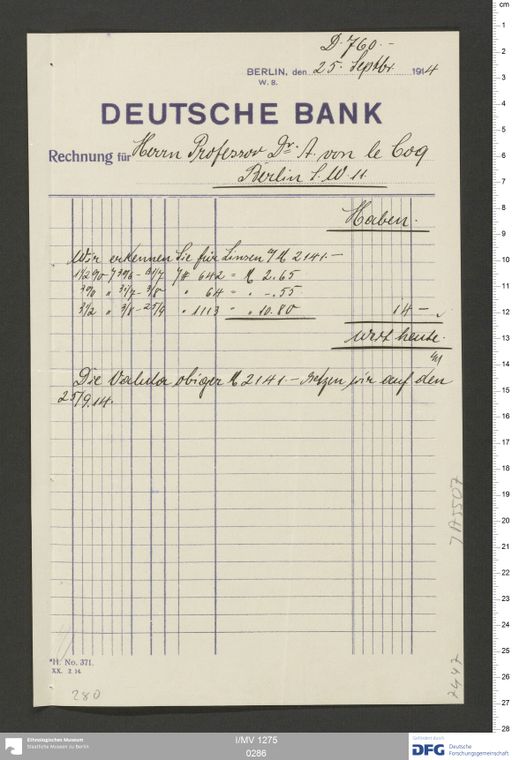 D. 760.-
BERLIN, den 25. Septbr. 1914
W. 8.
DEUTSCHE BANK
Rechnung für Herrn Professor Dr. A von le Coq
Berlin S. W. 11.
Haben.
Wir erkennen Sie für Zinsen / M 2141.-
1 1/2 % 30/6 - 31/7 # 642 = M 2.65
3 % " 31/7 - 3/8 " 64 = " -.55
3 1/2 " 3/8 - 25/9 " 1113 = " 10.80 14 -
Wert heute.
Die Valuta obiger M 2141.- setzen wir auf den
25/9.14.
*H. No. 371.
XX. 2 14.
280
7447
Ethnologisches Museum
Staatliche Museen zu Berlin
I/MV 1275
0286
Gefördert durch
DFG Deutsche
Forschungsgemeinschaft
cm
1
2
3
4
5
6
7
8
9
10
11
12
13
14
15
16
17
18
19
20
21
22
23
24
25
26
27
28